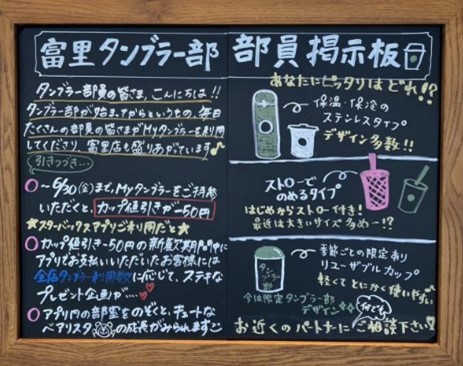 富里タンブラー部
タンブラー部員の皆さま、こんにちは!!
タンブラー部が始まってからというもの、毎日
たくさんの部員の皆さまがMyタンブラーを利用
してくださり、富里店も盛りあがっています♪
引きつづき…
〇~6/30(金)まで、Myタンブラーをご持参
いただくと、カップ値引きが-50円
★スターバックスアプリご利用だと★
〇カップ値引き-50円の新規欠期間中に
アプリでお支払いいただいたお客様には
全店タンブラー利用数に応じて、ステキな
プレゼント企画が…♥♥
〇アプリ内の部室をのぞくと、キュートな
ベアリスタの成長がみられます
部員掲示板
あなたにピッタリはどれ!?
保温・保冷の
ステンレスタイプ
デザイン多数!!
ストローで
のめるタイプ
はじめからストロー付き!
最近は大きいサイズ多め…!?
季節ごとの限定あり
リユーザブルカップ
軽くてとにかく使いやすい
今は限定タンブラー部
デザイン
何でも
お近くのパートナーにご相談下さい!